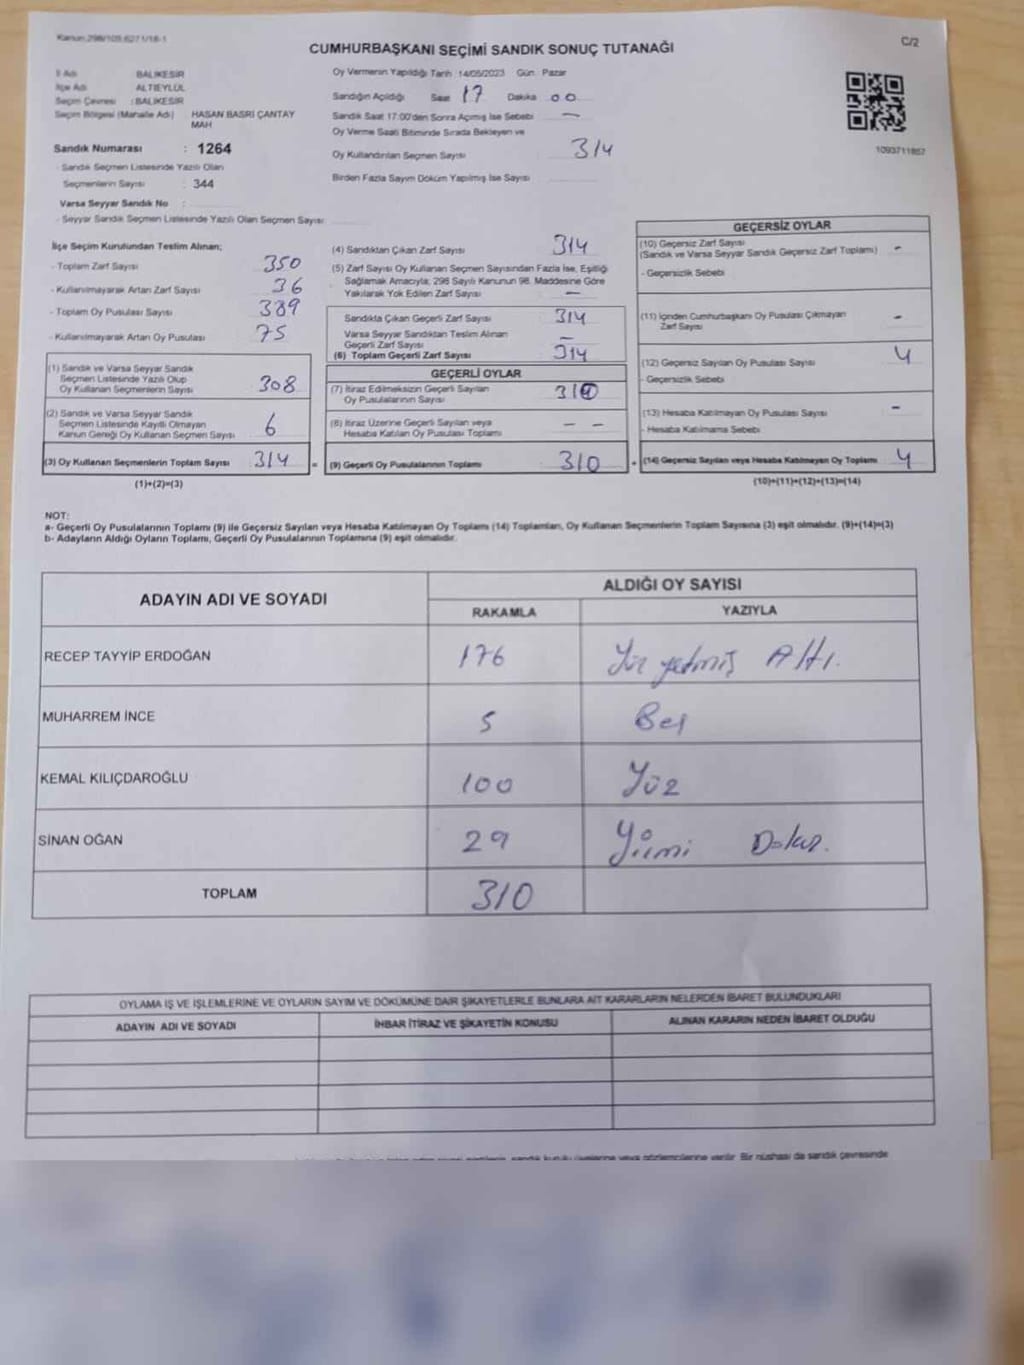 Kanun:298/105,6271/18-1
C/2
CUMHURBAŞKANI SEÇİMİ SANDIK SONUÇ TUTANAĞI
İl Adı BALIKESİR
İlçe Adı ALTIEYLÜL
Seçim Çevresi : BALIKESİR
Seçim Bölgesi (Mahalle Adı) HASAN BASRİ ÇANTAY MAH
Sandık Numarası : 1264
Sandık Seçmen Listesinde Yazılı Olan
Seçmenlerin Sayısı : 344
Varsa Seyyar Sandık No :
- Seyyar Sandık Seçmen Listesinde Yazılı Olan Seçmen Sayısı
Oy Vermenin Yapıldığı Tarih :14/05/2023 Gün: Pazar
Sandığın Açıldığı Saat 17 Dakika 00
Sandık Saat 17:00'den Sonra Açımış İse Sebebi —
Oy Verme Saati Bitiminde Sırada Bekleyen ve
Oy Kullandırılan Seçmen Sayısı 314
Birden Fazla Sayım Döküm Yapılmış İse Sayısı
1093711857
İlçe Seçim Kurulundan Teslim Alınan;
- Toplam Zarf Sayısı 350
- Kullanılmayarak Artan Zarf Sayısı 36
- Toplam Oy Pusulası Sayısı 389
- Kullanılmayarak Artan Oy Pusulası 75
(1) Sandık ve Varsa Seyyar Sandık
Seçmen Listesinde Yazılı Olup
Oy Kullanan Seçmenlerin Sayısı 308
(2) Sandık ve Varsa Seyyar Sandık
Seçmen Listesinde Kayıtlı Olmayan
Kanun Gereği Oy Kullanan Seçmen Sayısı 6
(3) Oy Kullanan Seçmenlerin Toplam Sayısı 314
(1)+(2)=(3)
(4) Sandıktan Çıkan Zarf Sayısı 314
(5) Zarf Sayısı Oy Kullanan Seçmen Sayısından Fazla İse, Eşitliği
Sağlamak Amacıyla; 298 Sayılı Kanunun 98. Maddesine Göre
Yakılarak Yok Edilen Zarf Sayısı —
Sandıkta Çıkan Geçerli Zarf Sayısı 314
Varsa Seyyar Sandıktan Teslim Alınan
Geçerli Zarf Sayısı —
(6) Toplam Geçerli Zarf Sayısı 314
GEÇERLİ OYLAR
(7) İtiraz Edilmeksizin Geçerli Sayılan
Oy Pusulalarının Sayısı 310
(8) İtiraz Üzerine Geçerli Sayılan veya
Hesaba Katılan Oy Pusulası Toplamı — —
= (9) Geçerli Oy Pusulalarının Toplamı 310
GEÇERSİZ OYLAR
(10) Geçersiz Zarf Sayısı -
(Sandık ve Varsa Seyyar Sandık Geçersiz Zarf Toplamı)
- Geçersizlik Sebebi
(11) İçinden Cumhurbaşkanı Oy Pusulası Çıkmayan
Zarf Sayısı -
(12) Geçersiz Sayılan Oy Pusulası Sayısı 4
- Geçersizlik Sebebi
(13) Hesaba Katılmayan Oy Pusulası Sayısı -
- Hesaba Katılmama Sebebi
+ (14) Geçersiz Sayılan veya Hesaba Katılmayan Oy Toplamı 4
(10)+(11)+(12)+(13)=(14)
NOT:
a- Geçerli Oy Pusulalarının Toplamı (9) ile Geçersiz Sayılan veya Hesaba Katılmayan Oy Toplamı (14) Toplamları, Oy Kullanan Seçmenlerin Toplam Sayısına (3) eşit olmalıdır. (9)+(14)=(3)
b- Adayların Aldığı Oyların Toplamı, Geçerli Oy Pusulalarının Toplamına (9) eşit olmalıdır.
ADAYIN ADI VE SOYADI ALDIĞI OY SAYISI
RAKAMLA YAZIYLA
RECEP TAYYİP ERDOĞAN 176 Yüz yetmiş Altı.
MUHARREM İNCE 5 Beş
KEMAL KILIÇDAROĞLU 100 Yüz
SİNAN OĞAN 29 Yirmi Dokuz.
TOPLAM 310
OYLAMA İŞ VE İŞLEMLERİNE VE OYLARIN SAYIM VE DÖKÜMÜNE DAİR ŞİKAYETLERLE BUNLARA AİT KARARLARIN NELERDEN İBARET BULUNDUKLARI
ADAYIN ADI VE SOYADI İHBAR İTİRAZ VE ŞİKAYETİN KONUSU ALINAN KARARIN NEDEN İBARET OLDUĞU
sandık kurulu üyelerine veya gözlemcilerine verilir. Bir nüshası da sandık çevresinde